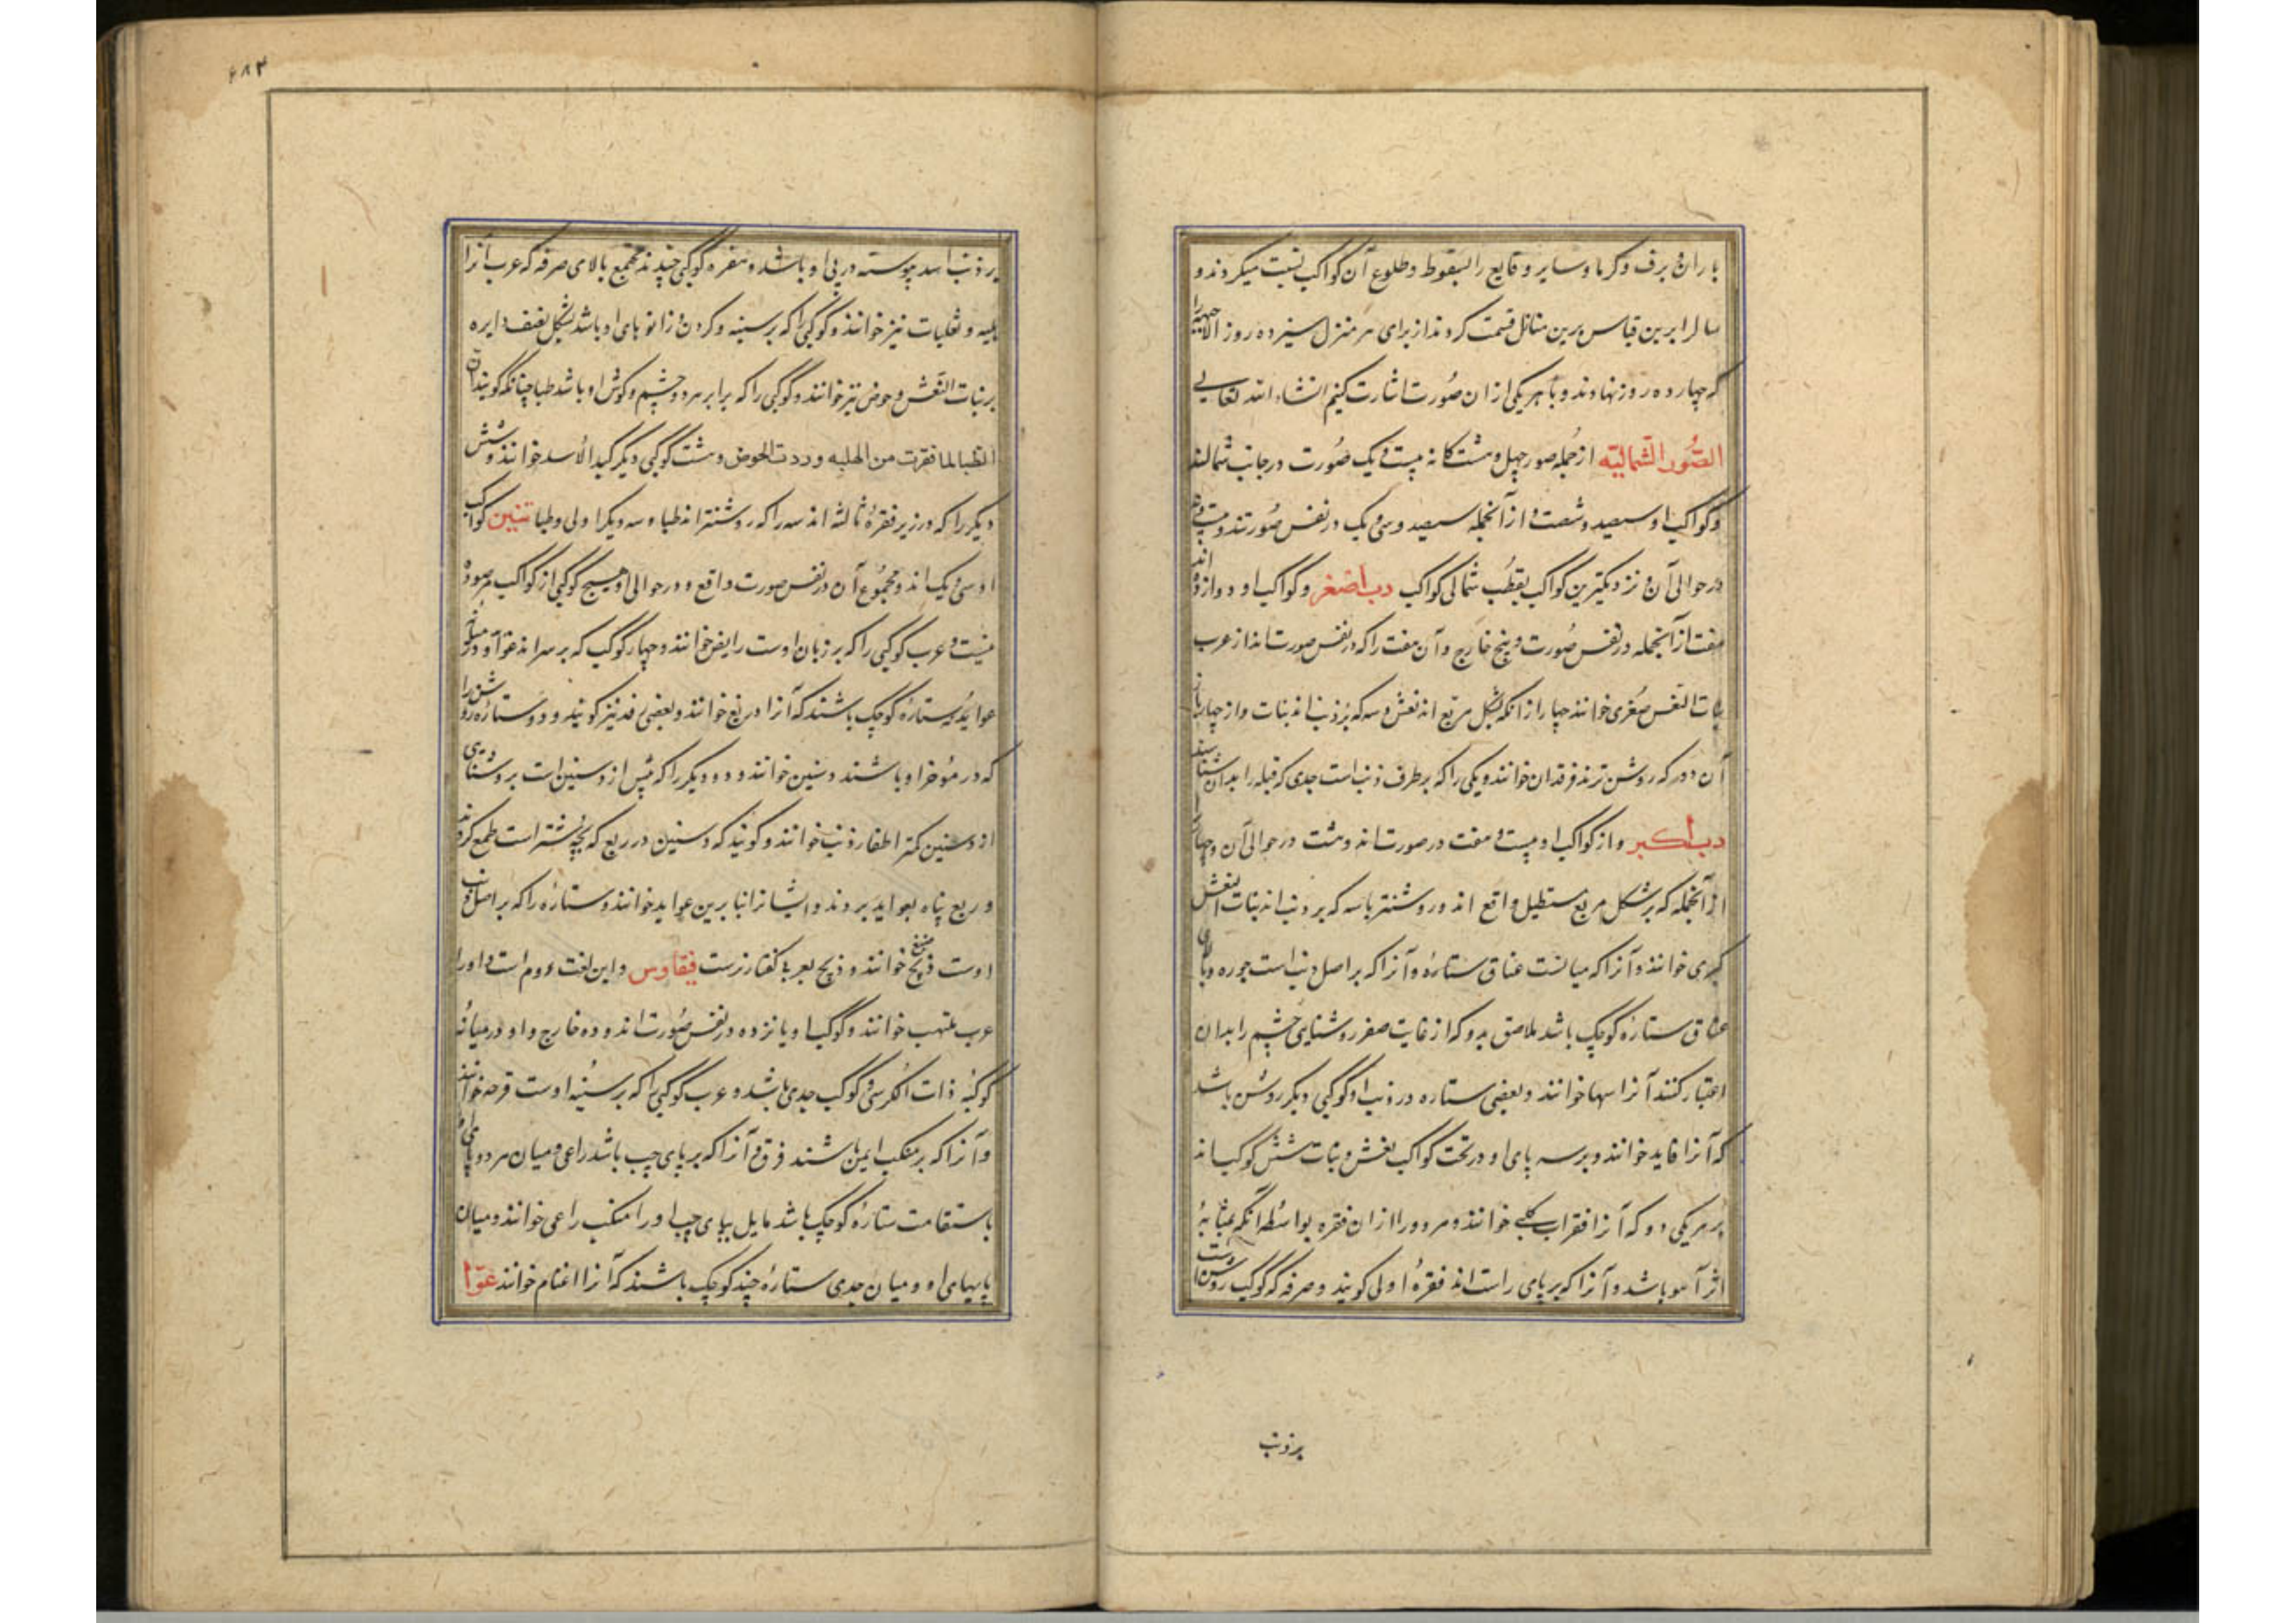 باران و برف و کرما و سایر وقایع را بسقوط و طلوع آن کواکب نسبت میکردند و
سال را برین قیاس برین منازل قسمت کردند از برای هر منزل سیزده روز الا جبهه را
که چهارده روز نهادند و با هر یکی ازان صورت اشارت کنیم انشاء الله تعالی
الصُّور الشمالیّه از جمله صور چهل و هشت کانه بیست و یک صورت در جانب شمالند
و کواکب او سیصد و شصت و از آنجمله سیصد و سی و یک در نفس صورتند و بیست و نه
در حوالی آن و نزدیکترین کواکب بقطب شمالی کواکب دب اصغر و کواکب او دوازده اند
هفت از آنجمله در نفس صورت و پنج خارج و آن هفت را که در نفس صورت اند از عرب
بنات النعش صغری خوانند چهار از انکه بشکل مربع اند نعش و سه که بر ذنب اند بنات و از چهار
آن دو را که روشن ترند فرقدان خوانند و یکی را که بر طرف ذنب است جدی که قبله را بدان شناسند
دب اکبر و از کواکب او بیست و هفت در صورت اند و هشت در حوالی آن و چهار
از آنجمله که بر شکل مربع مستطیل واقع اند و روشنتر با سه که بر ذنب اند بنات النعش
کبری خوانند و آنرا که میانست عناق ستاره و آنرا که بر اصل ذنب است جوره و بالای
عناق ستاره کوچک باشد ملاصق بدو که از غایت صغر روشنایی چشم را بدان
اعتبار کنند آنرا سها خوانند و بعضی ستاره در ذنب او کوکبی دیکر روشن باشد
که آنرا قاید خوانند و بر سه پای او در تحت کواکب نعش و بنات شش کوکب اند
بر هر یکی دو که آنرا فقرات خوانند و هر دو را ازان فقره بواسطه آنکه بمثابه
اثر آهو باشد و آنرا که بر پای راست اند فقره اولی کویند و صرفه که کوکب روشن است
بر ذنب
بر ذنب اسد پیوسته در پی او باشد و هفره کوکبی چند مجتمع بالای صرفه که عرب آنرا
هلبه و ثعلیات نیز خوانند و کوکبی را که بر سینه و کردن و زانوهای او باشد بشکل نصف دایره
سریر بنات النعش و حوض نیز خوانند و کوکبی را که برابر هر دو چشم و کوش او باشد ظبا چنانکه کویند ان
الظبا لما نفرت من الهلبه وردت الحوض و هشت کوکبی دیکر کبد الاسد خوانند و شش
دیکر را که در زیر فقره ثالثه اند سه را که روشنتر اند ظبا و سه دیکر اولی و ظبا تنین کواکب
او سی و یک اند و مجموع آن در نفس صورت واقع و در حوالی او هیچ کوکبی از کواکب مرصوده
نیست و عرب کوکبی را که بر زبان اوست رافض خوانند و چهار کوکب که بر سر اند عوائذ و در میان
عواید ستاره کوچک باشند که آنرا ربع خوانند و بعضی فدنیز کویند و دو ستاره روشن را
که در مؤخر او باشند ذنبین خوانند و دو دیکر را که پیش از ذنبین است بروشنایی
از ذنبین کمتر اظفار ذنب خوانند و کویند که ذنبین در ربع که بچه شتر است طمع کردند
و ربع پناه بعواید بردند و ایشانرا بنابرین عواید خوانند و ستاره را که بر اصل ذنب
اوست ذیخ خوانند و ذیخ بعربی کفتار نرست فیقاوس و این لغت روم است و او را
عرب ملتهب خوانند و کوکب او یازده در نفس صورت اند و ده خارج و او در میانه
کوکبه ذات الکرسی و کوکب جدی باشد و عرب کوکبی را که بر سینه اوست قرحه خوانند
و آنرا که بر منکب ایمن باشند فرق و آنرا که بر پای چپ باشد راعی و میان هر دو پای
باستقامت ستاره کوچک باشد مایل بپای چپ او را کلب راعی خوانند و میان
پایهای او و میان جدی ستاره چند کوچک باشند که آنرا اغنام خوانند عوّا